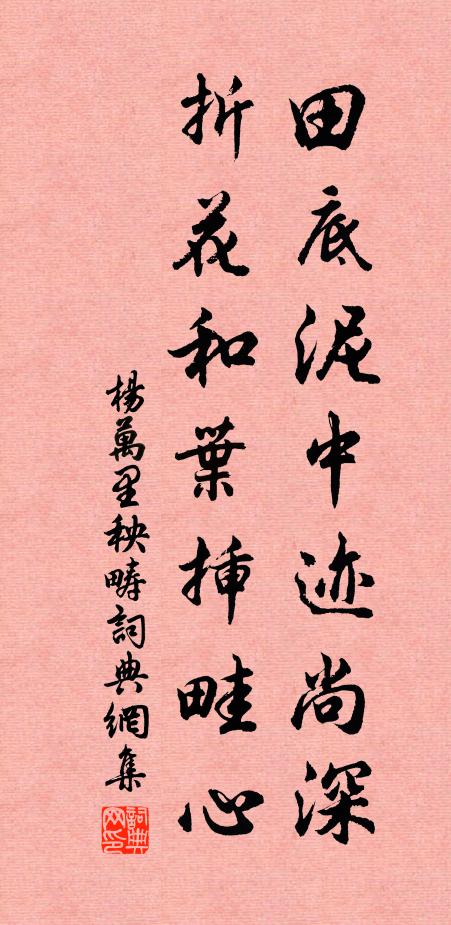 田底泥中迹尚深
折花和葉插畦心
楊萬里秧疇詞典網集
詞典网印